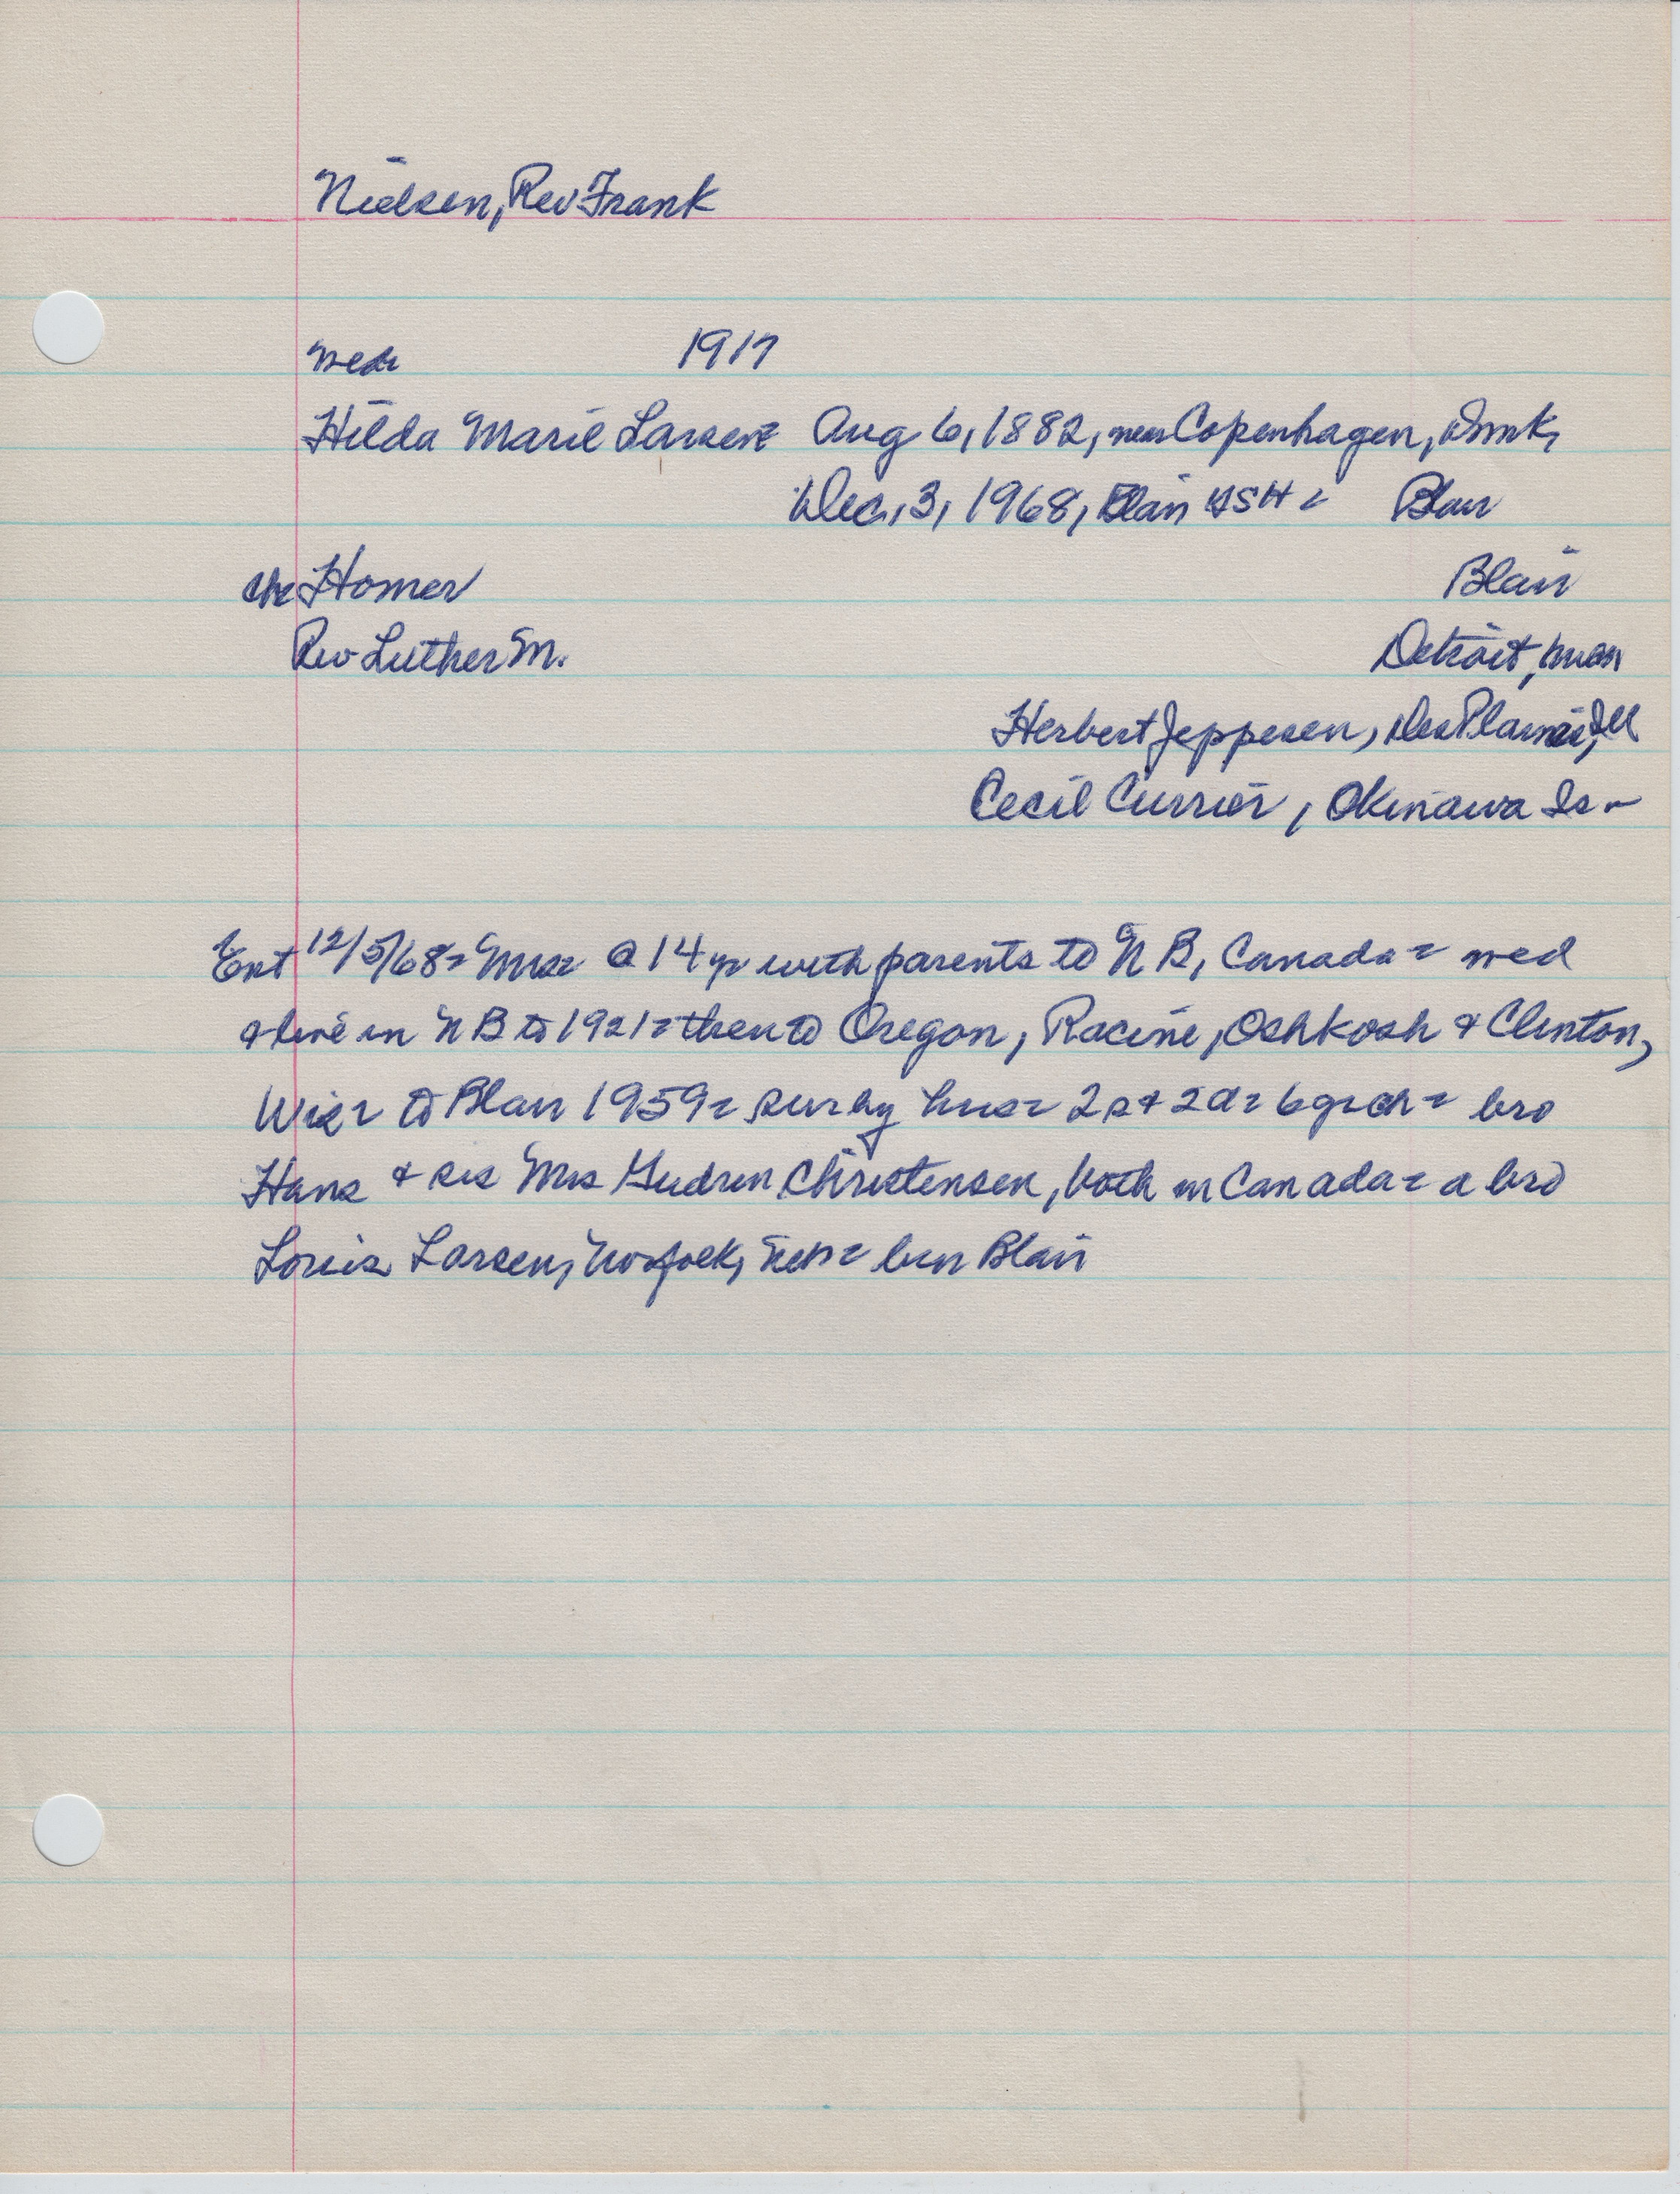 Nielsen, Rev Frank
wed 1917
Hilda Marie Larsen= Aug 6, 1882, near Copenhagen, Dmk,
Dec, 3, 1968, Blair = Blair
ch= Homer Blair
Rev Luther M. Detroit,
Herbert Jeppesen, Des Plaines, Ill
Cecil Currier, Okinawa Is-
Ent 12/5/68= Mrs= @ 14 yr with parents to N B, Canada= wed
& live in N B to 1921= then to Oregon, Racine, Oshkosh & Clinton,
Wis= to Blair 1959= sur by hus= 2 s + 2 d= 6 grch= bro
Hans & sis Mrs Gudrun Christensen, both in Canada= a bro
Louis Larsen, Norfolk, Neb= bur Blair